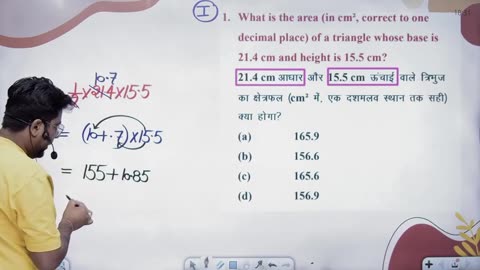 I
1. What is the area (in cm², correct to one
decimal place) of a triangle whose base is
21.4 cm and height is 15.5 cm?
21.4 cm आधार और 15.5 cm ऊंचाई वाले त्रिभुज
का क्षेत्रफल (cm² में, एक दशमलव स्थान तक सही)
क्या होगा?
(a) 165.9
(b) 156.6
(c) 165.6
(d) 156.9
10.7
× 21.4 × 15.5
= (10+.7) × 15.5
= 155+10.85